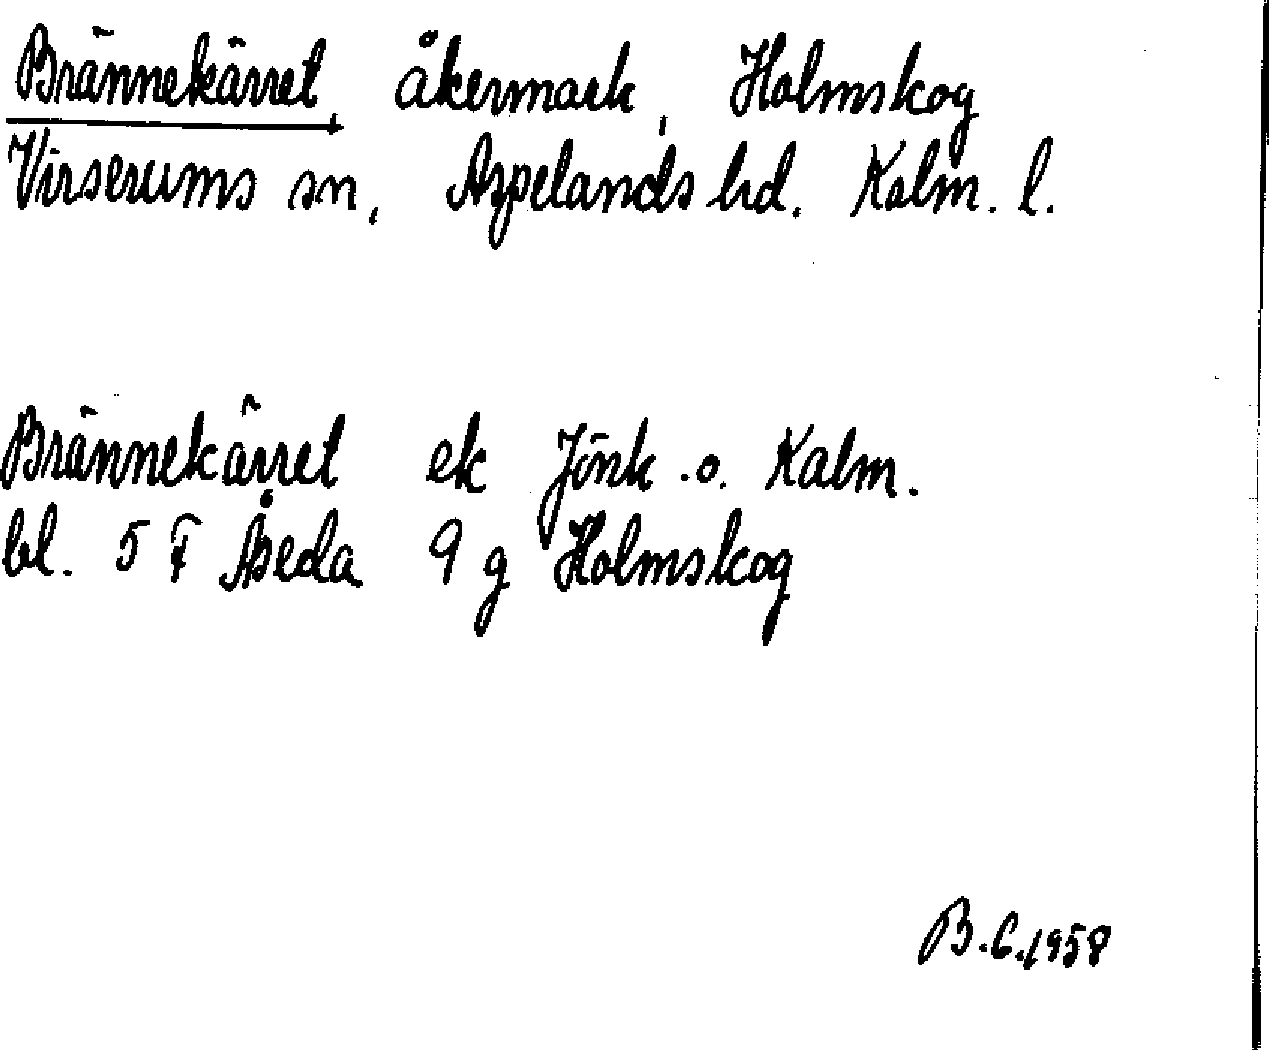 Brännekärret, åkermark, Holmskog
Virserums sn, Aspelands hd. Kalm. l.
Brännekärret ek Jönk. o. Kalm.
bl. 5 F Åseda 9 g Holmskog
B.C.1958